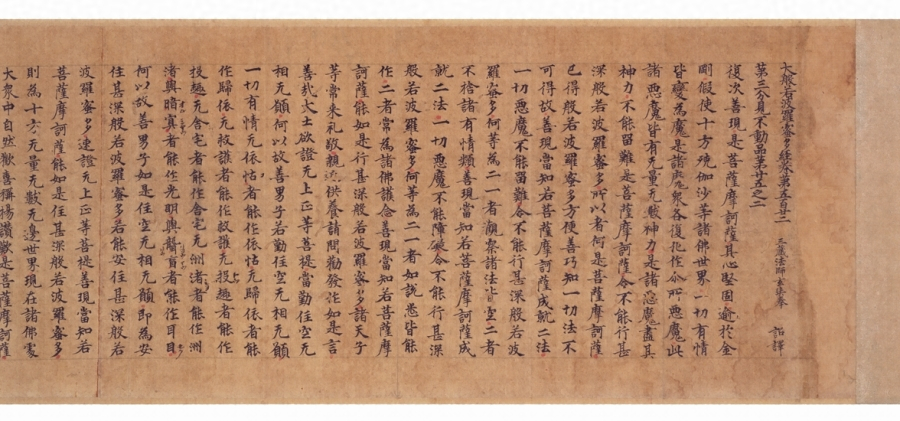 大般若波羅蜜多經卷第五百廿二
第三分見不動品第廿五之二 三藏法師玄奘奉 詔譯
復次善現是菩薩摩訶薩其心堅固逾於金
剛假使十方殑伽沙等諸佛世界一切有情
皆變為魔是諸魔眾各復化作尒所惡魔此
諸惡魔皆有无量无數神力是諸惡魔盡其
神力不能留難是菩薩摩訶薩令不能行甚
深般若波羅蜜多所以者何是菩薩摩訶薩
已得般若波羅蜜多方便善巧知一切法不
可得故善現當知若菩薩摩訶薩成就二法
一切惡魔不能留難令不能行甚深般若波
羅蜜多何等為二一者觀察諸法皆空二者
不捨諸有情類善現當知若菩薩摩訶薩成
就二法一切惡魔不能障礙令不能行甚深
般若波羅蜜多何等為二一者如說悉皆能
作二者常為諸佛護念善現當知若菩薩摩
訶薩能如是行甚深般若波羅蜜多諸天子
等常來礼敬親近供養請問勸發作如是言
善哉大士欲證无上正等菩提當勤住空无
相无願何以故善男子若勤住空无相无願
一切有情无依怙者能作依怙无歸依者能
作歸依无救護者能作救護无投趣者能作
投趣无舍宅者能作舍宅无洲渚者能作洲
渚與暗冥者能作光明與聾盲者能作耳目
何以故善男子如是住空无相无願即為安
住甚深般若波羅蜜多若能安住甚深般若
波羅蜜多速證无上正等菩提善現當知若
菩薩摩訶薩能如是住甚深般若波羅蜜多
則為十方无量无數无邊世界現在諸佛處
大眾中自然歡喜稱揚讚歎是菩薩摩訶薩